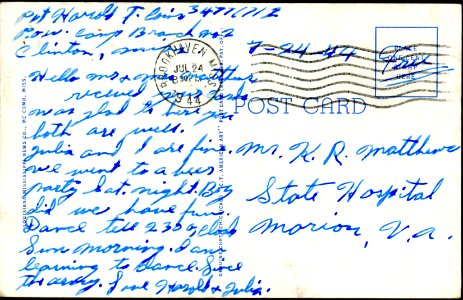 Pvt Harold T. 34771712
P.O.W. Camp Branch no 2
Clinton, miss
Hello mr & mrs matthews
received your card
was glad to hear you
both are well.
Julia and I are fine.
we went to a beer
party Sat. night. Boy
did we have fun.
Dance till 2 30 o'clock
Sun morning. I am
learning to dance. Since
the army. Love Harold & Julia.
BROOKHAVEN MISS.
JUL 24
1944
7-24-44
PLACE
POSTAGE
HERE
Free
POST CARD
Mr. K. R. Matthews
State Hospital
Marion, Va.